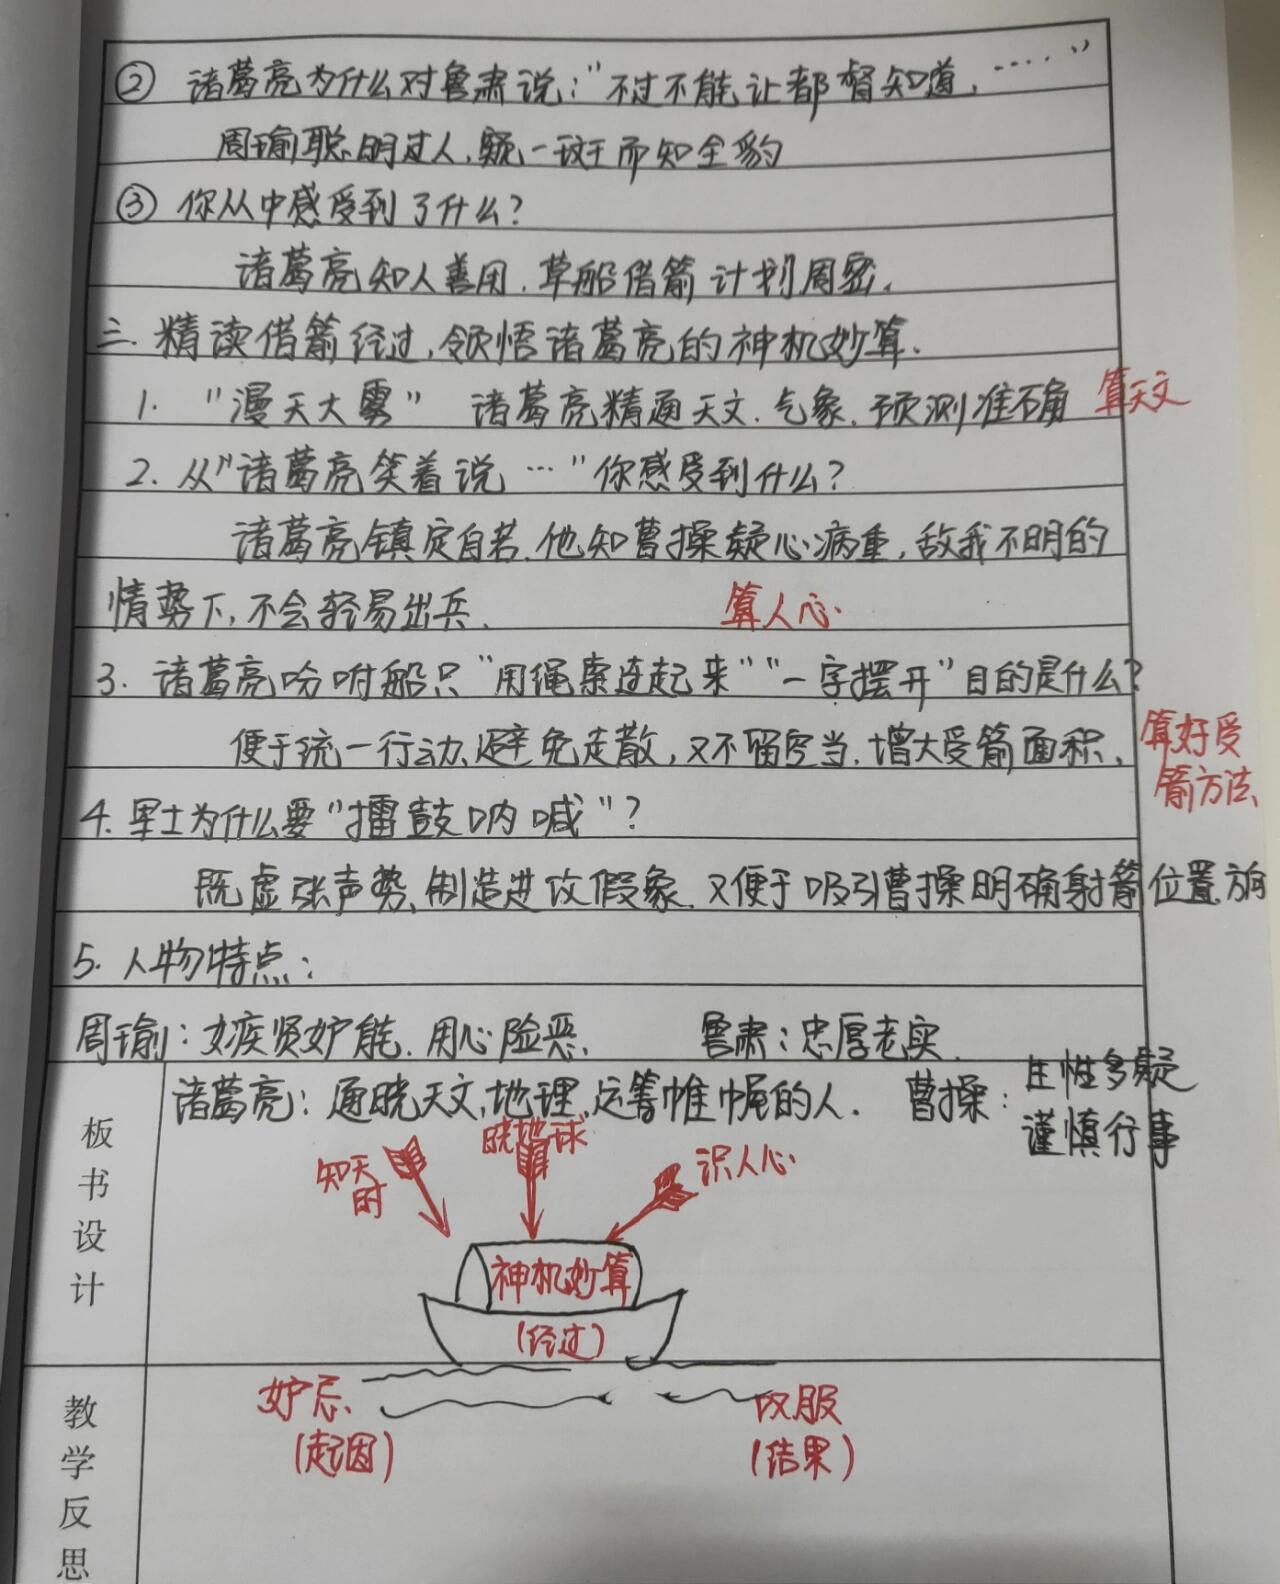 ② 诸葛亮为什么对鲁肃说:“不过不能让都督知道,……”
周瑜聪明过人,窥一斑而知全豹
③ 你从中感受到了什么?
诸葛亮知人善用.草船借箭计划周密.
三.精读借箭经过,领悟诸葛亮的神机妙算.
1. “漫天大雾” 诸葛亮精通天文.气象.预测准确 算天文
2. 从“诸葛亮笑着说…”你感受到什么?
诸葛亮镇定自若.他知曹操疑心病重,敌我不明的
情势下,不会轻易出兵. 算人心.
3. 诸葛亮吩咐船只“用绳索连起来”“一字摆开”目的是什么?
便于统一行动、避免走散,又不留空当.增大受箭面积. 算好受
箭方法
4. 军士为什么要“擂鼓呐喊”?
既虚张声势、制造进攻假象.又便于吸引曹操明确射箭位置.方向
5. 人物特点:
周瑜:嫉贤妒能.用心险恶. 鲁肃:忠厚老实.
诸葛亮:通晓天文,地理,运筹帷幄的人. 曹操:生性多疑
谨慎行事
板书设计
知天时
晓地球
识人心
神机妙算
(经过)
妒忌
(起因)
叹服
(结果)
教学反思